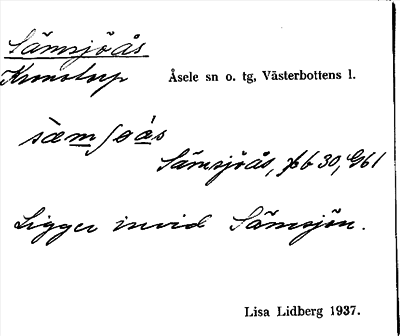 Sämsjöås
Kronotorp Åsele sn o. tg, Västerbottens l.
sämʃøås
Sämsjöås, jb 30, G61
Ligger invid Sämsjön.
Lisa Lidberg 1937.